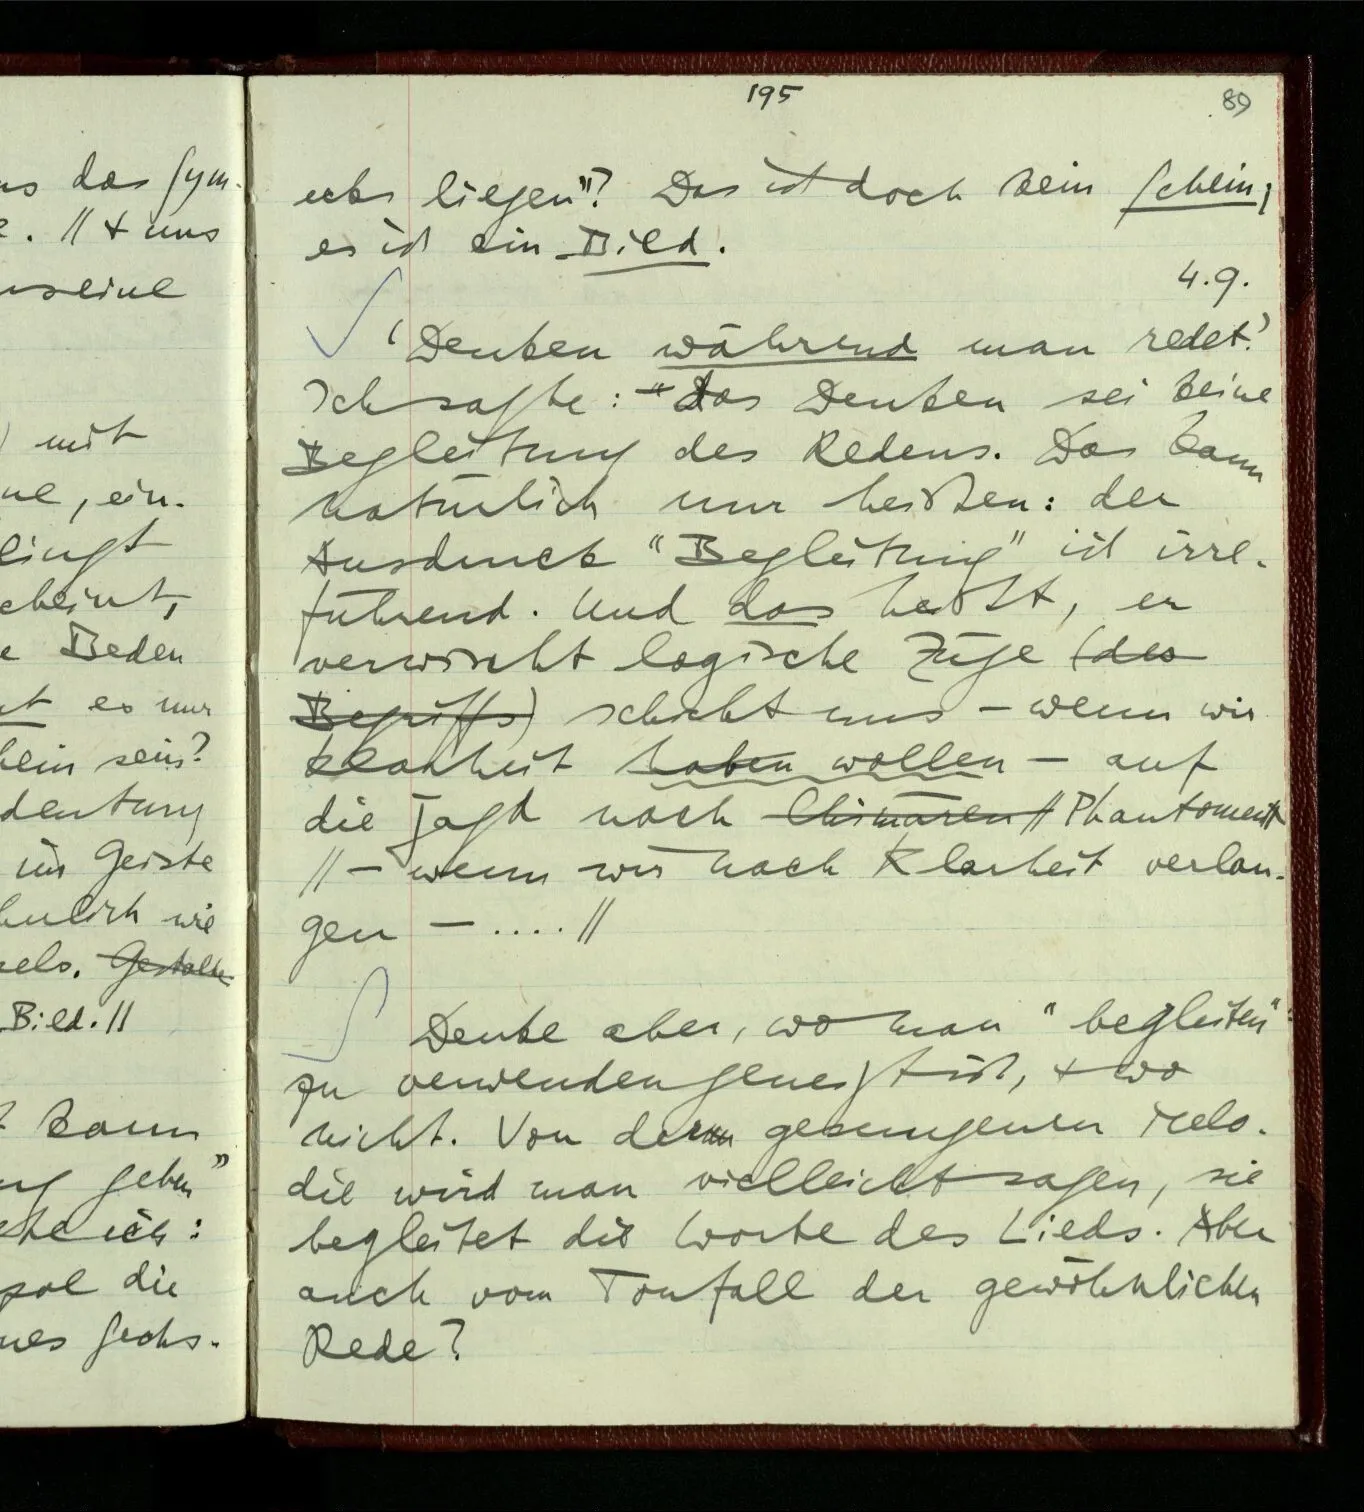 195
89
ecks liegen"? Das ist doch kein Schein;
es ist ein Bild.
4.9.
'Denken während man redet.'
Ich sagte: "Das Denken sei keine
Begleitung des Redens. Das kann
natürlich nur heißen: der
Ausdruck "Begleitung" ist irre-
führend. Und das heißt, er
verwischt logische Züge (des
Begriffs) schickt uns – wenn wir
Klarheit haben wollen – auf
die Jagd nach Chimären // Phantomen //
// – wenn wir nach Klarheit verlan-
gen – .... //
Denke aber, wo man "begleiten"
zu verwenden geneigt ist, + wo
nicht. Von der gesungenen Melo-
die wird man vielleicht sagen, sie
begleitet die Worte des Lieds. Aber
auch vom Tonfall der gewöhnlichen
Rede?
das Sym-
. // + uns
seine
mit
, ein-
lingt
scheint,
Beden
es nur
sein?
deutung
im Geiste
hnlich wie
sels. Gestalt
Bild. //
kann
geben"
ich:
die
nes Sechs-